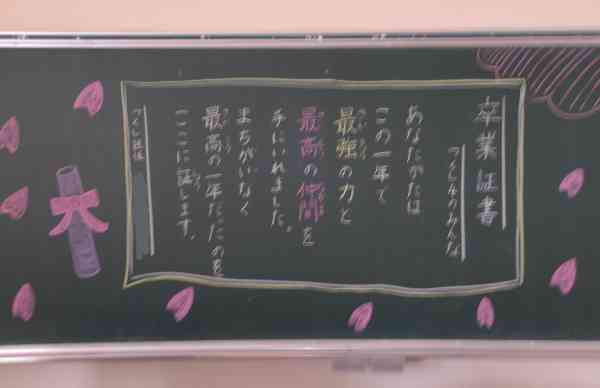 卒業証書
つくし4のみんな
あなたがたは
この一年で
最強の力と
最高の仲間を
手にいれました。
まちがいなく
最高の一年だったのを
ここに証します。
つくし担任